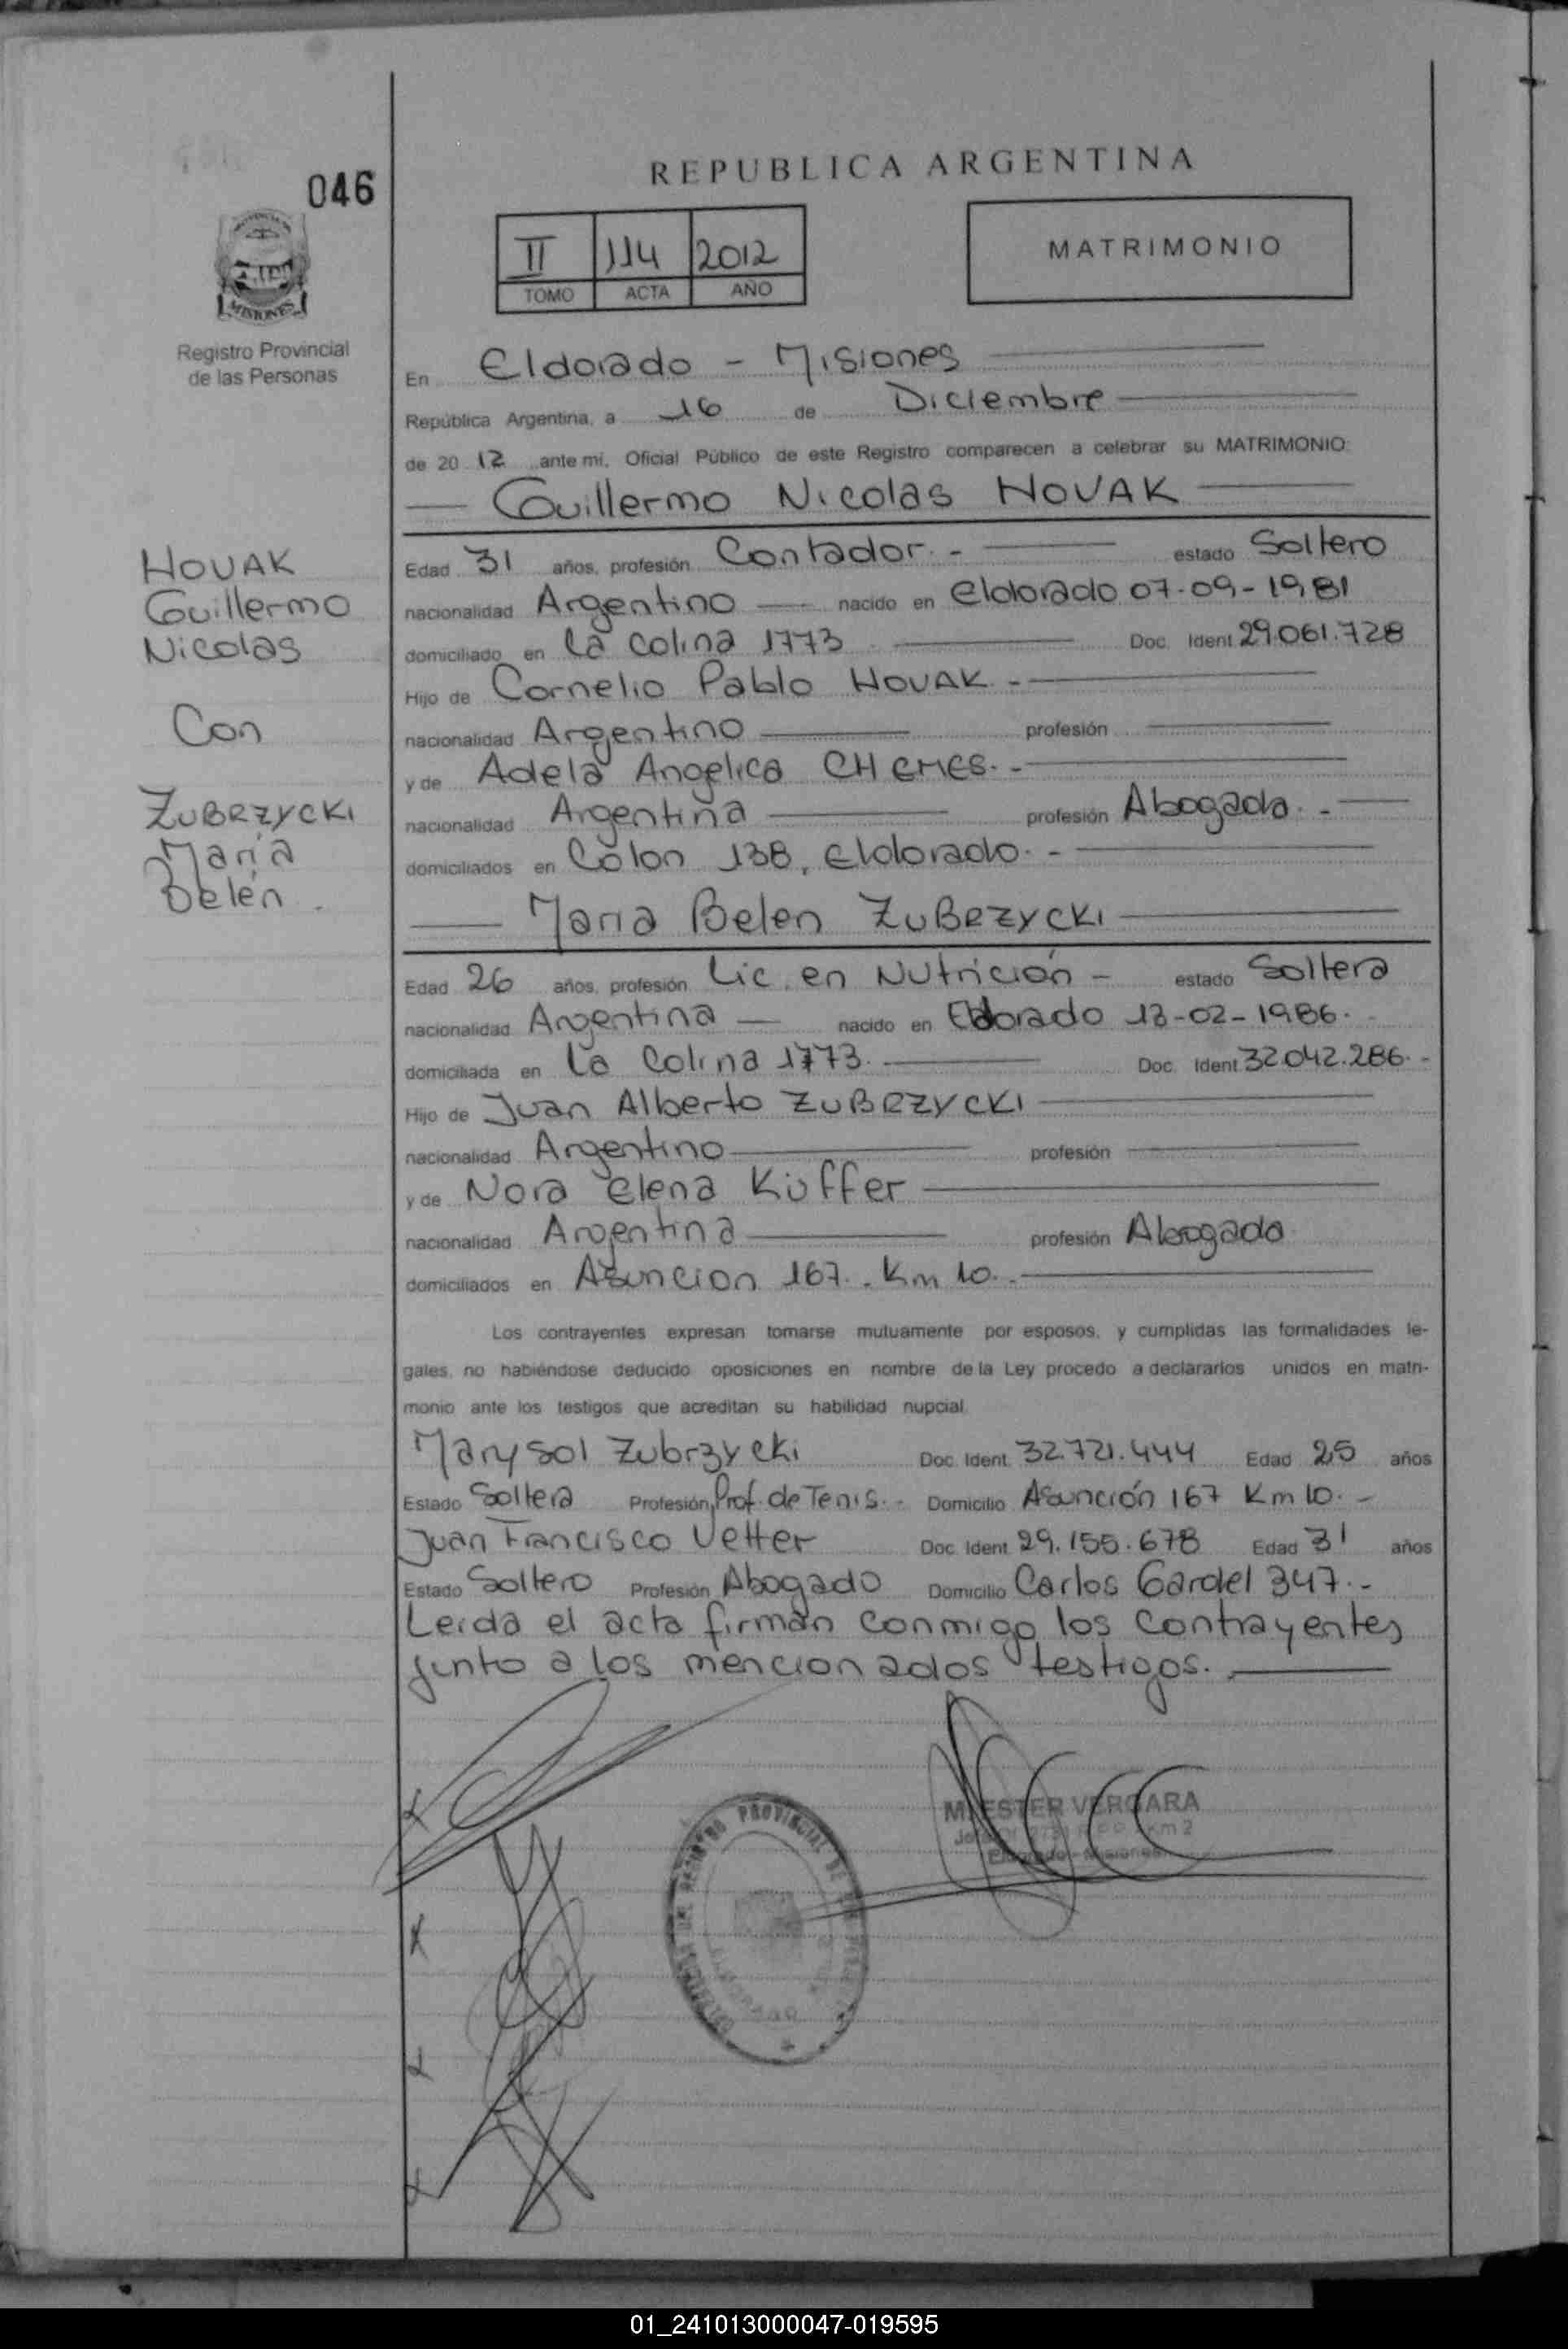 046
REPUBLICA ARGENTINA
II 114 2012
TOMO ACTA AÑO
MATRIMONIO
MISIONES
Registro Provincial
de las Personas
En Eldorado - Misiones
República Argentina, a 16 de Diciembre
de 2012 ante mi, Oficial Público de este Registro comparecen a celebrar su MATRIMONIO:
Guillermo Nicolas NOVAK
NOVAK
Guillermo
Nicolas
Con
ZUBRZYCKI
María
Belén.
Edad 31 años, profesión Contador. - estado Soltero
nacionalidad Argentino nacido en Eldorado 07-09-1981
domiciliado en La Colina 1773 Doc. Ident 29.061.728
Hijo de Cornelio Pablo NOVAK -
nacionalidad Argentino profesión
y de Adela Angelica CHEMES. -
nacionalidad Argentina profesión Abogada. -
domiciliados en Colon 138, Eldorado. -
Maria Belen ZUBRZYCKI
Edad 26 años, profesión Lic. en Nutrición - estado Soltera
nacionalidad Argentina nacido en Eldorado 13-02-1986.
domiciliada en La Colina 1773. Doc. Ident. 32.042.286. -
Hijo de Juan Alberto ZUBRZYCKI
nacionalidad Argentino profesión
y de Nora Elena Küffer
nacionalidad Argentina profesión Abogada
domiciliados en Asuncion 167. Km 10. -
Los contrayentes expresan tomarse mutuamente por esposos, y cumplidas las formalidades le-
gales, no habiéndose deducido oposiciones en nombre de la Ley procedo a declararlos unidos en matri-
monio ante los testigos que acreditan su habilidad nupcial.
Marysol Zubrzycki Doc. Ident. 32.721.444 Edad 25 años
Estado Soltera Profesión Prof. de Tenis. - Domicilio Asunción 167 Km 10. -
Juan Francisco Vetter Doc. Ident. 29.155.678 Edad 31 años
Estado Soltero Profesión Abogado Domicilio Carlos Gardel 347. -
Leida el acta firman conmigo los contrayentes
junto a los mencionados testigos.
VERGARA
Km 2
Eldorado - Misiones
PROVINCIAL DE
ELDORADO
01_241013000047-019595